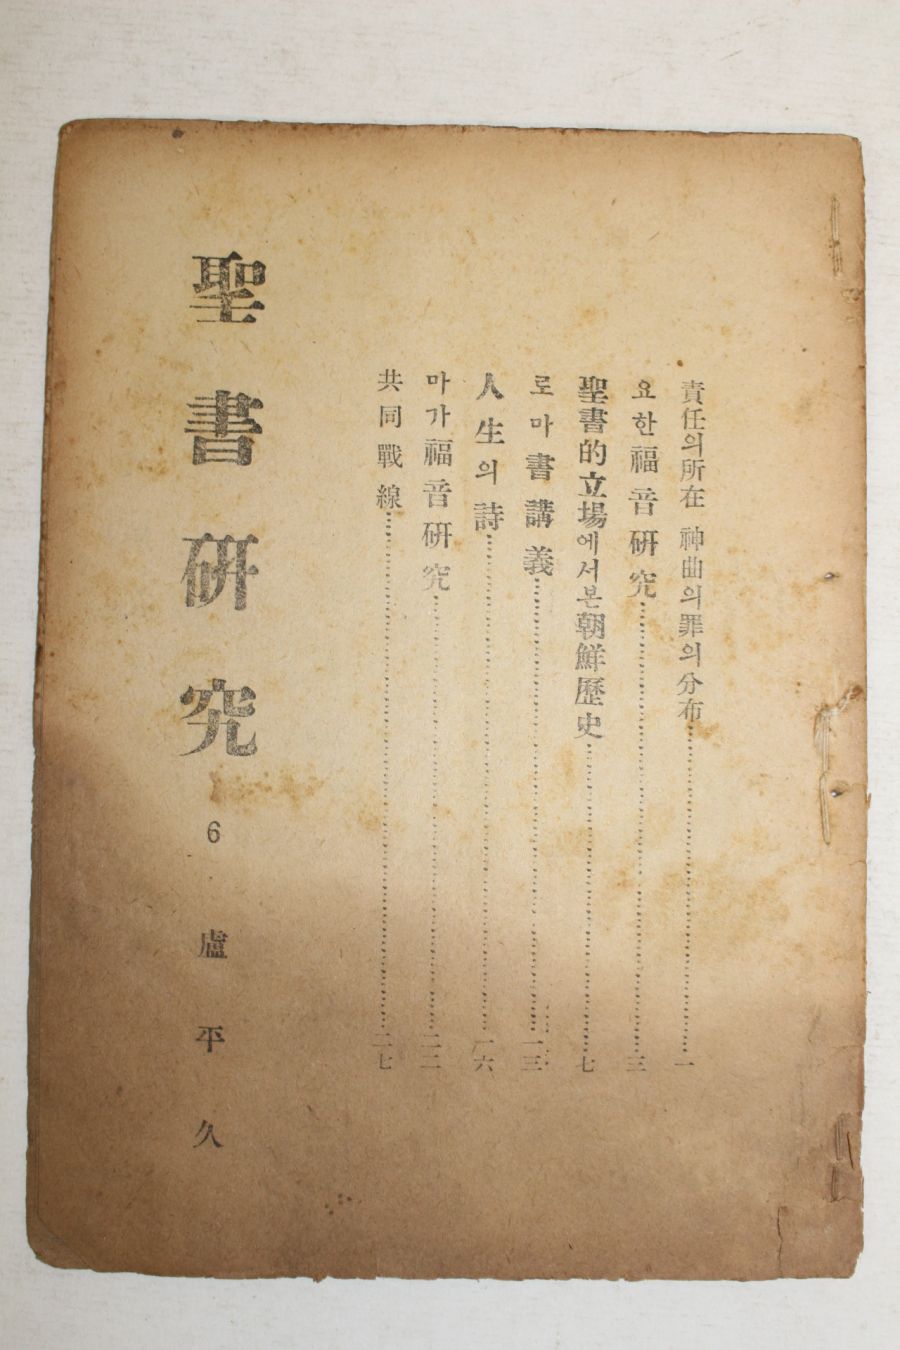 責任의所在 神曲의罪의分布…………一
요한福音研究…………三
聖書的立場에서본朝鮮歷史…………七
로마書講義…………一三
人生의詩…………一六
마가福音研究…………二二
共同戰線…………二七
聖書研究 6 盧平久